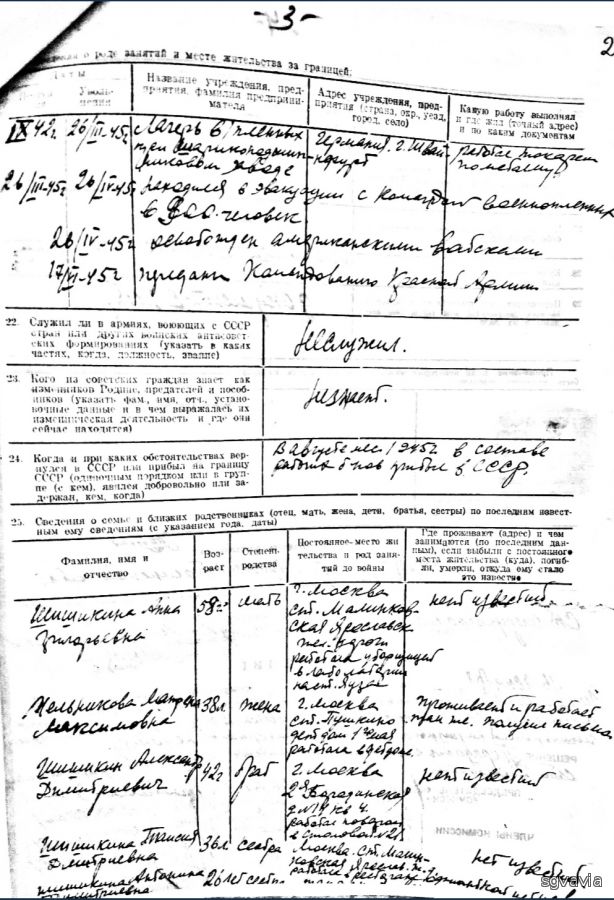 - 3 -
2
о роде занятий и месте жительства за границей:
Даты
Увольнения
Название учреждения, предприятия, фамилия предпринимателя
Адрес учреждения, предприятия (страна, окр., уезд, город, село)
Какую работу выполнял и где жил (точный адрес) и по каким документам
IX 42г 26/III-45г Лагерь в/пленных при шарикоподшипниковом заводе
Германия, г. Швайнфурт
работал токарем по металлу
26/III-45г 26/IV-45г находился в эвакуации с командой военнопленных
в человек
26/IV-45г освобожден американскими войсками
17/VI-45г передан Командованию Красной Армии
22. Служил ли в армиях, воюющих с СССР
стран или других воинских антисовет-
ских формированиях (указать в каких
частях, когда, должность, звание)
не служил.
23. Кого из советских граждан знает как
изменников Родине, предателей и пособ-
ников (указать фам., имя, отч., устано-
вочные данные и в чем выражалась их
изменническая деятельность и где они
сейчас находятся)
не знает.
24. Когда и при каких обстоятельствах вер-
нулся в СССР или прибыл на границу
СССР (одиночным порядком или в груп-
пе (с кем), явился добровольно или за-
держан, кем, когда)
В августе мес. 1945г в составе
прибыл в СССР
25. Сведения о семье и близких родственниках (отец, мать, жена, дети, братья, сестры) по последним извест-
ным ему сведениям (с указанием года, даты)
Фамилия, имя и
отчество
Воз-
раст
Степень
родства
Постоянное место жи
тельства и род заня-
тий до войны
Где проживают (адрес) и чем
занимаются (по последним дан-
ным), если выбыли с постоянного
места жительства (куда), погиб-
ли, умерли, откуда ему стало
это известно
Шишикина Анна
58 мать
г. Москва
ст.
ская Ярославск.
жел. дороги
работала уборщицей
в лаборатории
на ст. Яуза
нет известий
Мельникова Матрена
Максимовна
38л жена
г. Москва
ст. Пушкино
детдом
работала в детдоме
Проживает и работает
там же. Получил письмо
Шишикин Александр
Димитриевич
42г брат
г. Москва
2я Бородинская
д. № 14 кв 4.
работал поваром
в столовой
нет известий
Шишикина Таисия
Дмитриевна
36л сестра
Москва. ст.
нет известий
ЧЛЕНЫ КОМИССИИ
Шишикина Антонина
Димитриевна
26 лет сестра
sgvavia